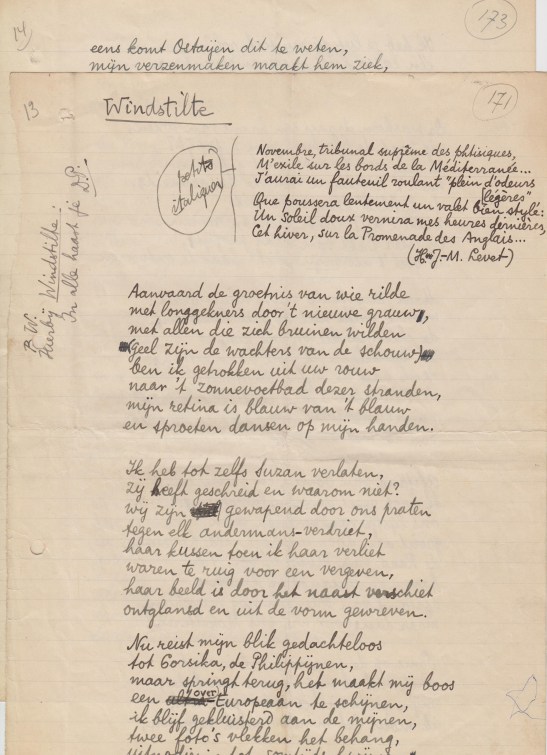 14
173
eens komt Ostaijen dit te weten,
mijn verzenmaken maakt hem ziek,
13
171
Windstilte
petits
italiques?
Novembre, tribunal suprême des phtisiques,
M'exile sur les bords de la Méditerranée...
J'aurai un fauteuil roulant "plein d'odeurs
légères"
Que poussera lentement un valet bien stylé:
Un Soleil doux vernira mes heures dernières,
Cet hiver, sur la Promenade des Anglais...
(H. J.-M. Levet)
B.W.
Hierby Windstilte.
In alle haast je D.P.
Aanvaard de groetnis van wie rilde
met longgekners door 't nieuwe grauw,
met allen die zich bruinen wilden
(geel zijn de wachters van de schouw)
ben ik getrokken uit uw rouw
naar 't zonnevoetbad dezer stranden,
mijn retina is blauw van 't blauw
en sproeten dansen op mijn handen.
Ik heb tot zelfs Suzan verlaten,
zij heeft geschreid en waarom niet?
wij zijn gewapend door ons praten
tegen elk andermans-verdriet,
haar kussen toen ik haar verliet
waren te ruig voor een vergeven,
haar beeld is door het naast verschiet
ontglansd en uit de vorm gewreven.
Nu reist mijn blik gedachteloos
tot Corsika, de Philippijnen,
maar springt terug, het maakt mij boos
een over-Europeaan te schijnen,
ik blijf gekluisterd aan de mijnen,
twee foto's vlekken het behang,